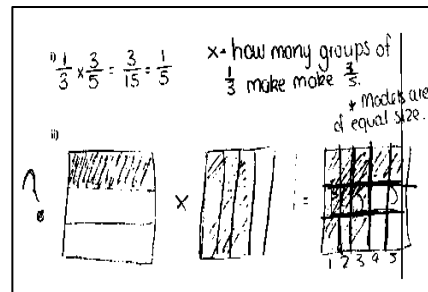 i) 1/3 x 3/5 = 3/15 = 1/5
x - how many groups of
1/3 make make 3/5.
* Models are
of equal size.
ii)
? x =
1 2 3 4 5